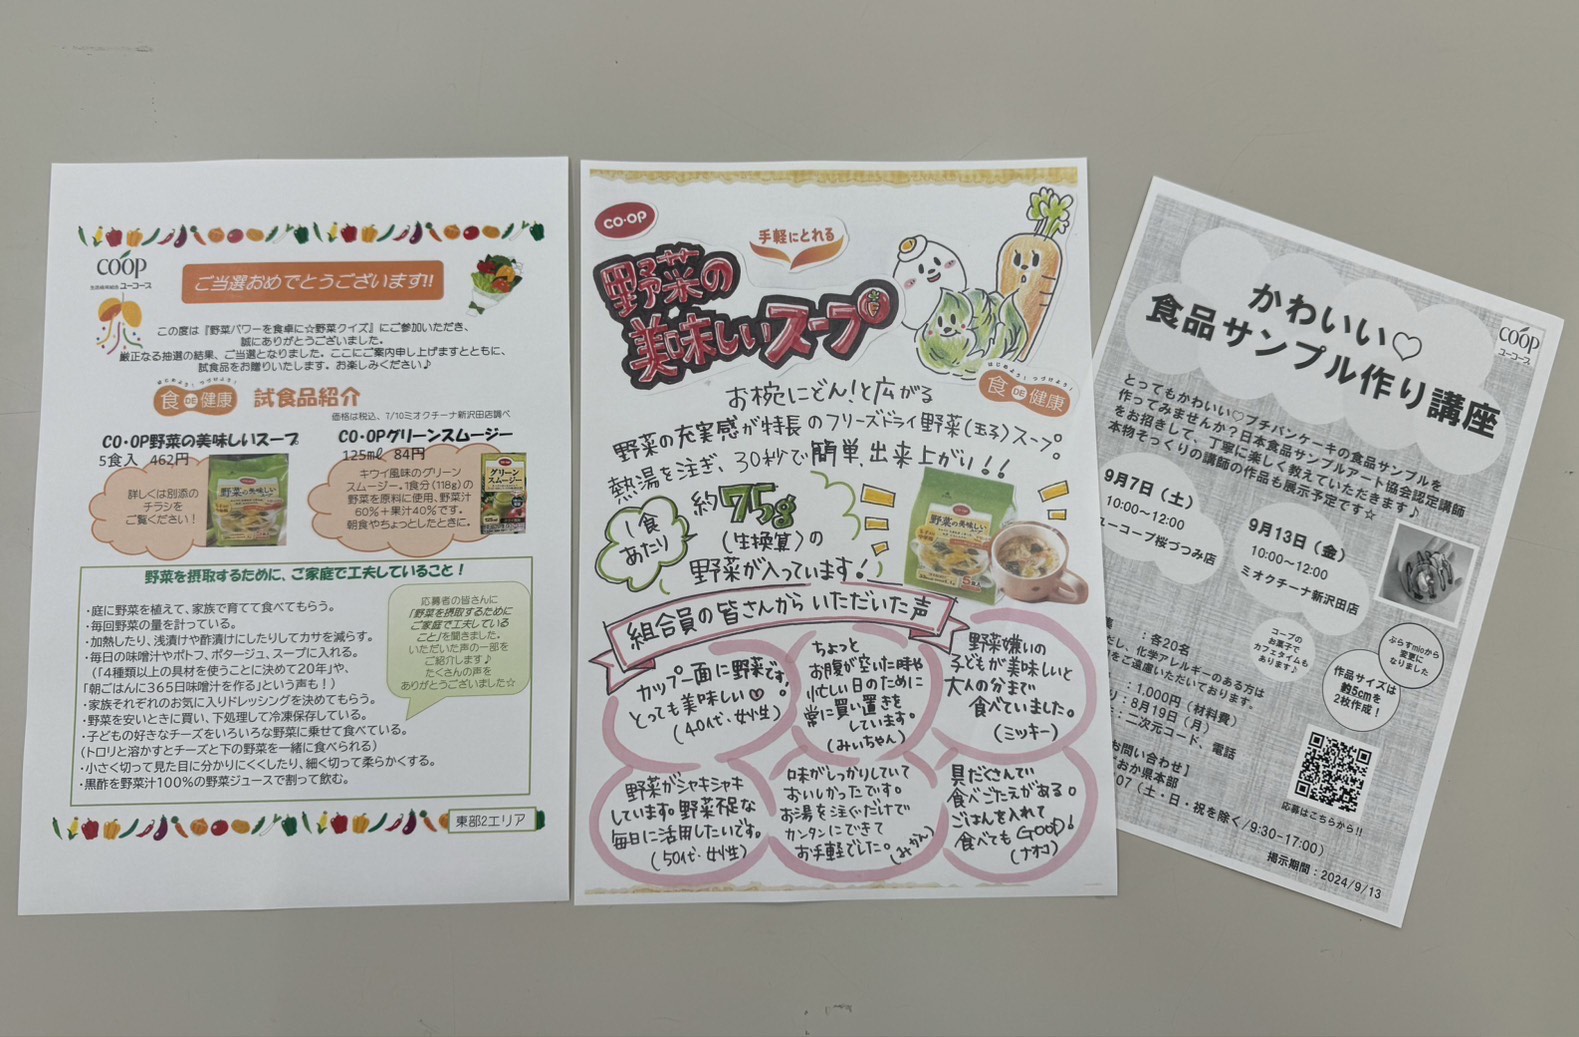 coop
生活協同組合 ユーコープ
ご当選おめでとうございます!!
この度は『野菜パワーを食卓に☆野菜クイズ』にご参加いただき、
誠にありがとうございました。
厳正なる抽選の結果、ご当選となりました。ここにご案内申し上げますとともに、
試食品をお贈りいたします。お楽しみください♪
はじめよう!つづけよう!
食DE健康
試食品紹介
価格は税込、7/10ミオクチーナ新沢田店調べ
CO・OP野菜の美味しいスープ
5食入 462円
詳しくは別添の
チラシを
ご覧ください!
CO・OPグリーンスムージー
125ml 84円
キウイ風味のグリーン
スムージー。1食分(118g)の
野菜を原料に使用、野菜汁
60%+果汁40%です。
朝食やちょっとしたときに。
グリーン
スムージー
野菜を摂取するために、ご家庭で工夫していること!
・庭に野菜を植えて、家族で育てて食べてもらう。
・毎回野菜の量を計っている。
・加熱したり、浅漬けや酢漬けにしたりしてカサを減らす。
・毎日の味噌汁やポトフ、ポタージュ、スープに入れる。
(「4種類以上の具材を使うことに決めて20年」や、
「朝ごはんに365日味噌汁を作る」という声も!)
・家族それぞれのお気に入りドレッシングを決めてもらう。
・野菜を安いときに買い、下処理して冷凍保存している。
・子どもの好きなチーズをいろいろな野菜に乗せて食べている。
(トロリと溶かすとチーズと下の野菜を一緒に食べられる)
・小さく切って見た目に分かりにくくしたり、細く切って柔らかくする。
・黒酢を野菜汁100%の野菜ジュースで割って飲む。
応募者の皆さんに
「野菜を摂取するために
ご家庭で工夫している
こと」を聞きました。
いただいた声の一部を
ご紹介します♪
たくさんの声を
ありがとうございました☆
東部2エリア
CO・OP
手軽にとれる
野菜の
美味しいスープ
はじめよう!つづけよう!
食DE健康
お椀にどん!と広がる
野菜の充実感が特長のフリーズドライ野菜(玉子)スープ。
熱湯を注ぎ、30秒で簡単、出来上がり!!
1食
あたり
約75g
(生換算)の
野菜が入っています!
野菜の美味しい
スープ
5食入
組合員の皆さんからいただいた声
カップ一面に野菜です!
とっても美味しい♡
(40代・女性)
ちょっと
お腹が空いた時や
忙しい日のために
常に買い置きを
しています。
(みいちゃん)
野菜嫌いの
子どもが美味しいと
大人の分まで
食べていました。
(ミッキー)
野菜がシャキシャキ
しています。野菜不足な
毎日に活用したいです。
(50代・女性)
味がしっかりしていて
おいしかったです。
お湯を注ぐだけで
カンタンにできて
お手軽でした。(みかん)
具だくさんで
食べごたえがある。
ごはんを入れて
食べてもGOOD!
(ナオコ)
coop
ユーコープ
かわいい♡
食品サンプル作り講座
とってもかわいい♡プチパンケーキの食品サンプルを
作ってみませんか?日本食品サンプルアート協会認定講師
をお招きして、丁寧に楽しく教えていただきます♪
本物そっくりの講師の作品も展示予定です☆
9月7日(土)
10:00~12:00
ユーコープ桜づつみ店
9月13日(金)
10:00~12:00
ミオクチーナ新沢田店
:各20名
だし、化学アレルギーのある方は
をご遠慮いただいております。
:1,000円(材料費)
:8月19日(月)
:二次元コード、電話
お問い合わせ】
おか県本部
07(土・日・祝を除く/9:30-17:00)
コープの
お菓子で
カフェタイムも
あります♪
ぷらすmioから
変更に
なりました
作品サイズは
約5cmを
2枚作成!
応募はこちらから!!
掲示期間:2024/9/13